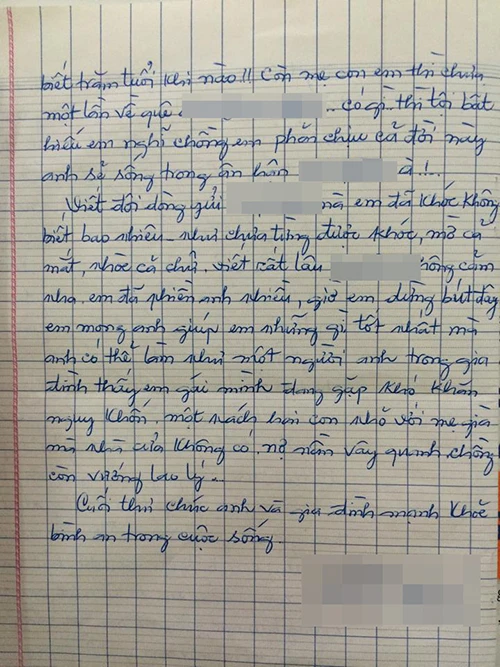 biết trăm tuổi khi nào!! Còn mẹ con em thì chưa
một lần về quê ... có gì thì tội bất
hiếu em nghĩ chồng em phải chịu cả đời này
anh sẽ sống trong ân hận à!..
Viết đôi dòng gửi mà em đã khóc không
biết bao nhiêu như chưa từng được khóc, mờ cả
mắt, nhòe cả chữ. Viết rất lâu không cầm
nha, em đã phiền anh nhiều, giờ em dừng bút đây
em mong anh giúp em những gì tốt nhất mà
anh có thể làm như một người anh trong gia
đình thấy em gái mình đang gặp khó khăn
nguy khốn. một nách hai con nhỏ với mẹ già
mà nhà cửa không có, nợ nần vây quanh, chồng
còn vướng lao lý.
Cuối thư chúc anh và gia đình mạnh khoẻ
bình an trong cuộc sống.